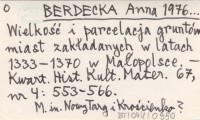 O BERDECKA Anna 1976...
Wielkość i parcelacja gruntów
miast zakładanych w latach
1333-1370 w Małopolsce. —
Kwart. Hist. Kult. Mater. 67,
nr 4: 553-566.
M. in. Nowy Targ i Krościenko?